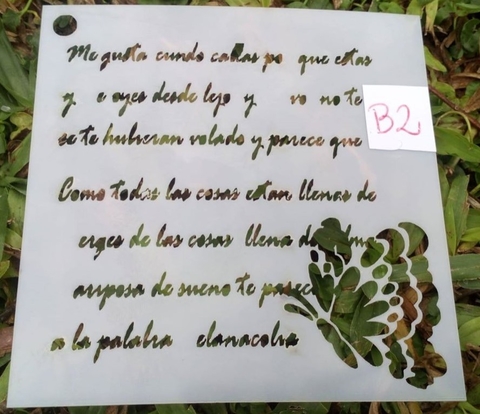 Me gusta cundo callas po que estas
y e oyes desde lejo y vo no te
se te hubieran volado y parece que
Como todas las cosas estan llenas de
erges de las cosas llena d lma
ariposa de sueno te parece
a la palabra elancolia
B2